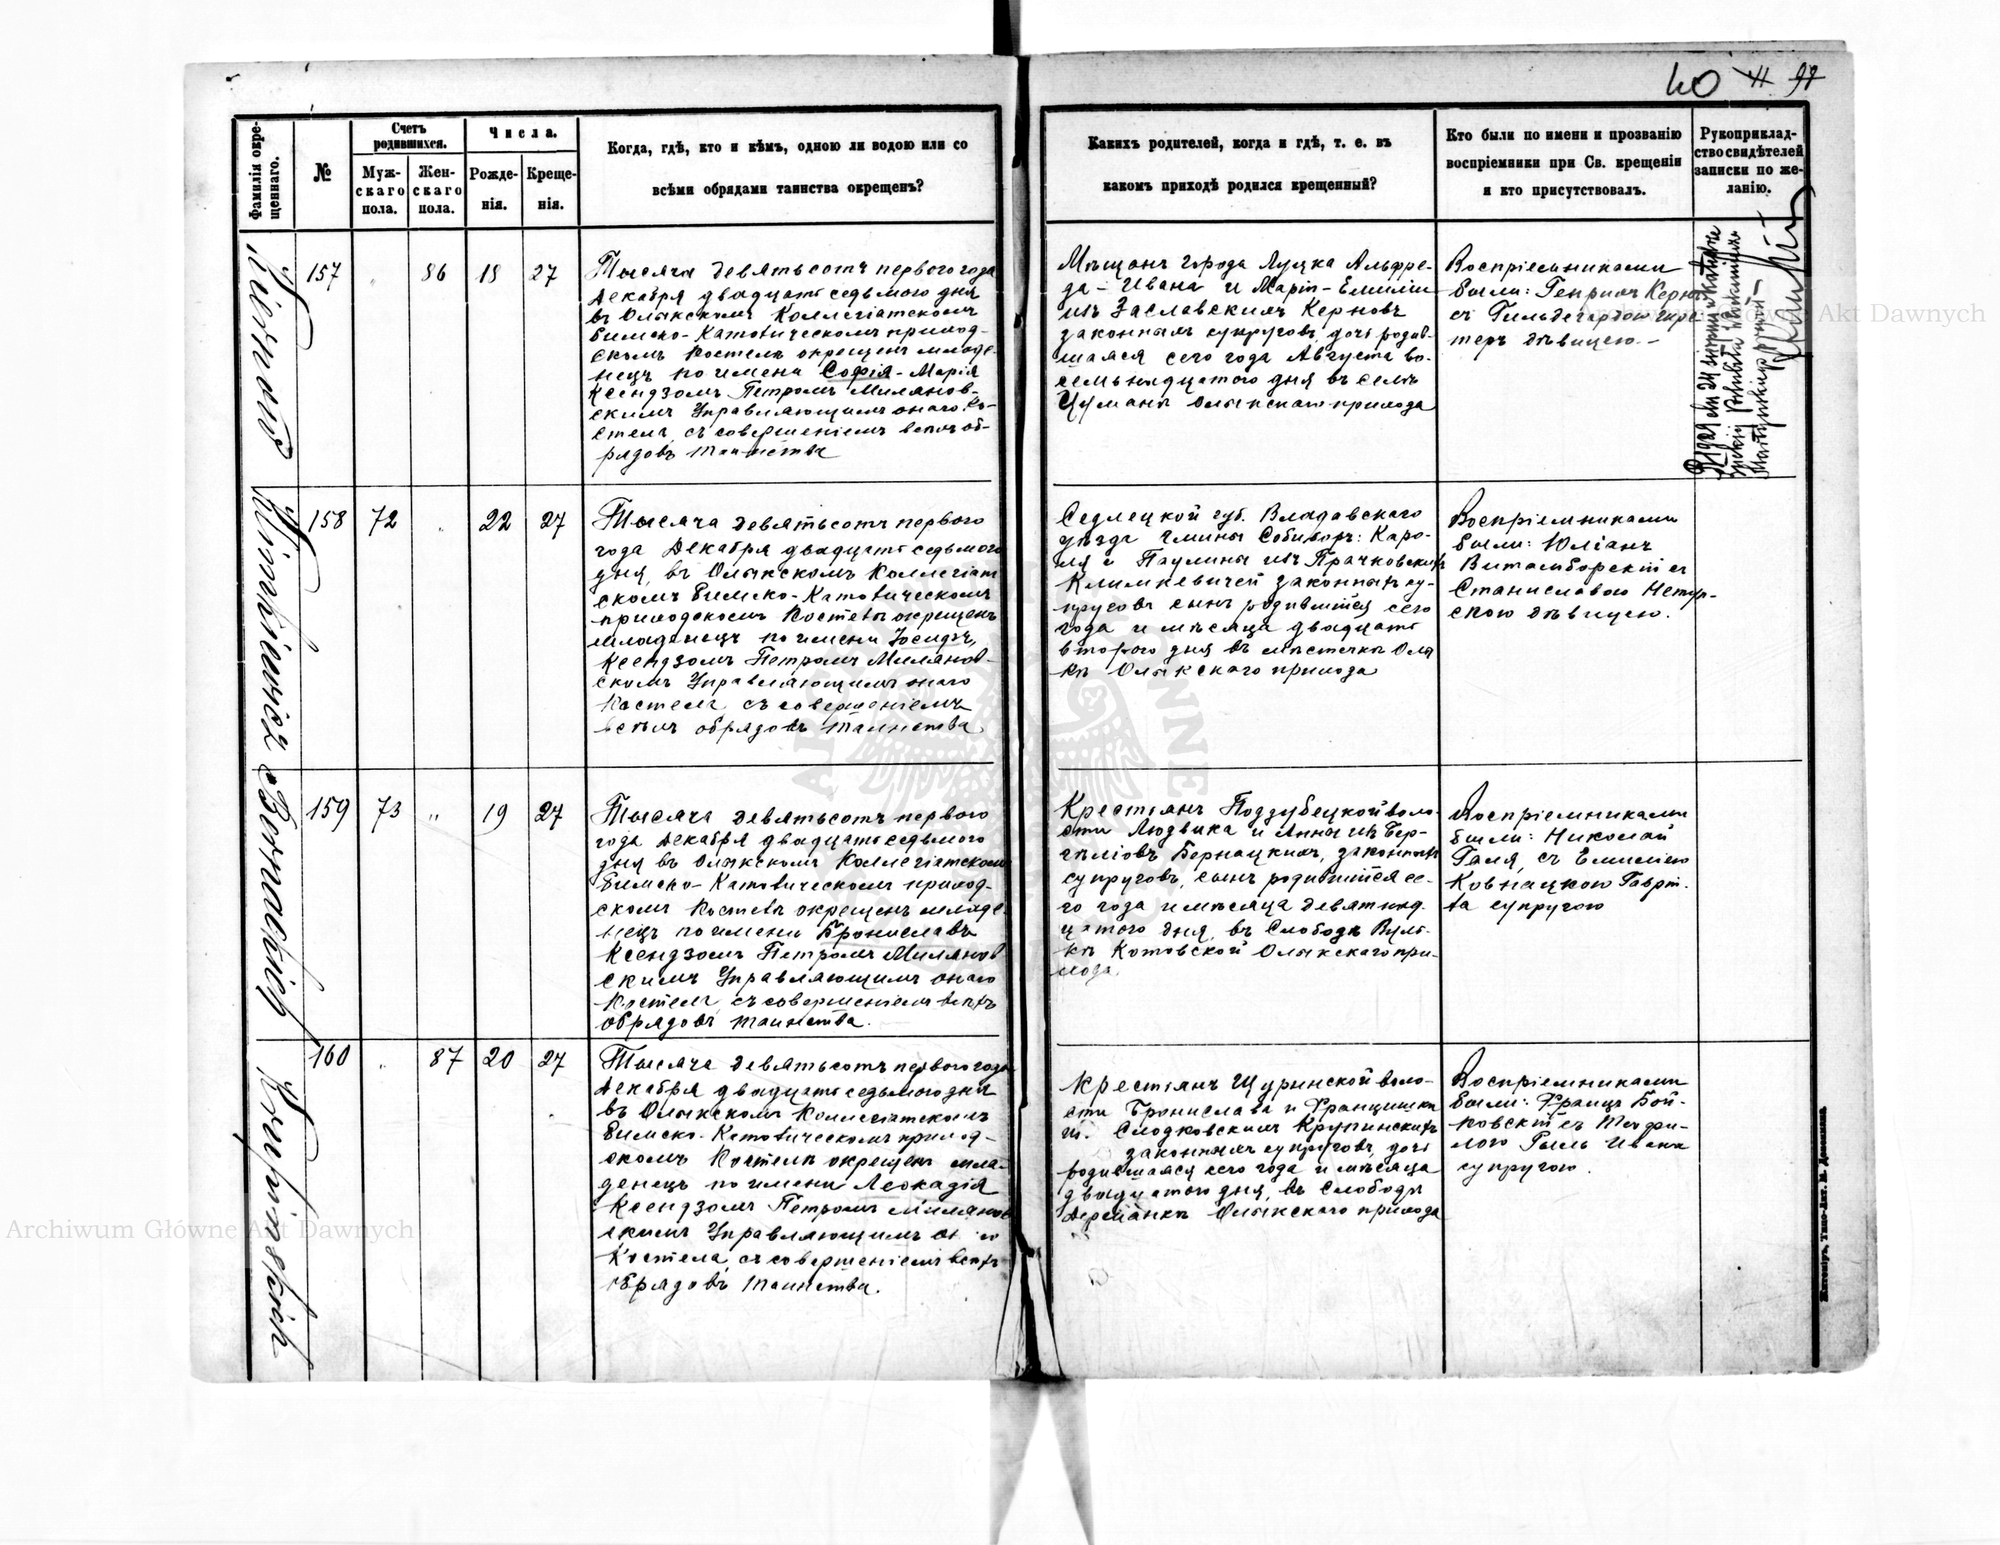 40 11 97
Фамилія окре-
щеннаго.
№
Счетъ
родившихся.
Муж-
скаго
пола.
Жен-
скаго
пола.
Числа.
Рожде-
нія.
Креще-
нія.
Когда, гдѣ, кто и кѣмъ, одною ли водою или со
всѣми обрядами таинства окрещенъ?
Какихъ родителей, когда и гдѣ, т. е. въ
какомъ приходѣ родился крещенный?
Кто были по имени и прозванію
воспріемники при Св. крещеніи
и кто присутствовалъ.
Рукоприклад-
ство свидѣтелей
записки по же-
ланію.
157 " 86 18 27
Тысяча девятьсотъ перваго года
Декабря двадцать седьмого дня
въ Олыкскомъ Коллегіатскомъ
Римско-Католическомъ приход-
скомъ Костелѣ окрещенъ младе-
нецъ по имени Софія-Марія
Ксендзомъ Петромъ Милянов-
скимъ Управляющимъ онаго Ко-
стела, съ совершеніемъ всѣхъ об-
рядовъ таинства
Мѣщанъ города Луцка Альфре-
да-Ивана и Маріи-Емиліи
изъ Заславскихъ Керновъ
законныхъ супруговъ, дочь родив-
шаяся сего года Августа во-
семьнадцатого дня въ селѣ
Цумань Олыкскаго прихода
Воспріемниками
были: Генрихъ Кернъ
съ Гильдегардою
теръ дѣвицею.-
Klimkiewicz
158 72 " 22 27
Тысяча девятьсотъ перваго
года Декабря двадцать седьмого
дня, въ Олыкскомъ Коллегіат
скомъ Римско-Католическомъ
приходскомъ Костелѣ окрещенъ
младенецъ по имени Іосифъ,
Ксендзомъ Петромъ Милянов-
скимъ Управляющимъ онаго
Костела съ совершеніемъ
всѣхъ обрядовъ таинства
Седлецкой губ. Владавскаго
уѣзда гмины Собиборъ: Каро-
ля и Паулины изъ Прачковскихъ
Климкевичей законныхъ су-
пруговъ сынъ родившійся сего
года и мѣсяца двадцать
второго дня въ мѣстечкѣ Олы
кѣ Олыкскаго прихода
Воспріемниками
были: Юліанъ
съ
Станиславою
скою дѣвицею.
Bernackich
159 73 " 19 27
Тысяча девятьсотъ перваго
года Декабря двадцать седьмого
дня въ Олыкскомъ Коллегіатскомъ
Римско-Католическомъ приход-
скомъ Костелѣ окрещенъ младе-
нецъ по имени Брониславъ
Ксендзомъ Петромъ Милянов
скимъ Управляющимъ онаго
Костела, съ совершеніемъ всѣхъ
обрядовъ таинства.
Крестьянъ Поддубецкой воло-
сти Людвика и Анны изъ
Бернацкихъ, законныхъ
супруговъ, сынъ родившійся се-
го года и мѣсяца девятнад-
цатого дня, въ Слободѣ Вуль-
кѣ Котовской Олыкскаго при-
хода.
Воспріемниками
были: Николай
Галя, съ Емиліею
Ковнацкою
супругою
Krupinskich
160 " 87 20 27
Тысяча девятьсотъ перваго года
Декабря двадцать седьмого дня
въ Олыкскомъ Коллегіатскомъ
Римско-Католическомъ приход-
скомъ Костелѣ окрещенъ мла-
денецъ по имени Леокадія
Ксендзомъ Петромъ Миляно-
скимъ Управляющимъ
Костела, съ совершеніемъ всѣхъ
обрядовъ таинства.
Крестьянъ Щуринской воло-
сти Бронислава и Францишки
изъ Слодковскихъ Крупинскихъ
законныхъ супруговъ, дочь
родившаяся сего года и мѣсяца
двадцатого дня, въ Слободѣ
Дерманкѣ Олыкскаго прихода
Воспріемниками
были: Францъ Бой-
ковскій съ Теофи-
лою Гыль Ивана
супругою.
Archiwum Główne Akt Dawnych
Akt Dawnych